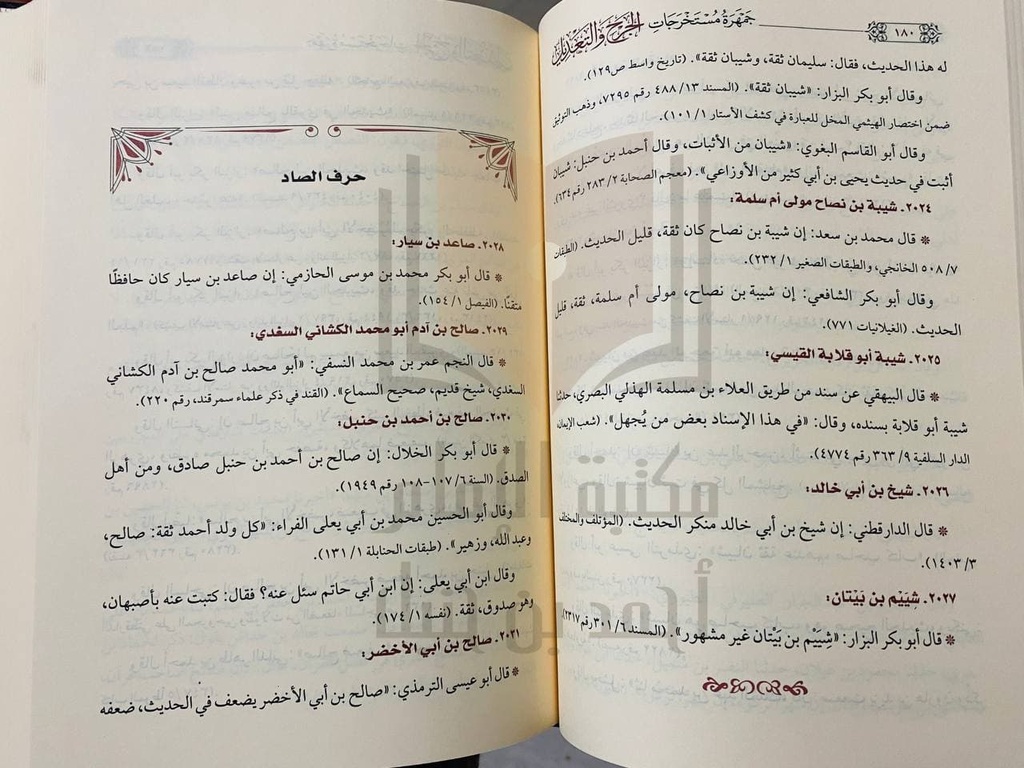 ١٨٠
جَمْهَرَةُ مُسْتَخْرَجَاتِ الجَرْحِ وَالتَّعْدِيلِ
له هذا الحديث، فقال: سليمان ثقة، وشيبان ثقة». (تاريخ واسط ص١٢٩).
وقال أبو بكر البزار: «شيبان ثقة». (المسند ١٣/ ٤٨٨ رقم ٧٢٩٥، وذهب التوثيق
ضمن اختصار الهيثمي المخل للعبارة في كشف الأستار ١/ ١٠١).
وقال أبو القاسم البغوي: «شيبان من الأثبات، وقال أحمد بن حنبل: شيبان
أثبت في حديث يحيى بن أبي كثير من الأوزاعي». (معجم الصحابة ٢/ ٢٨٣ رقم ٦٣٤).
٢٠٢٤. شيبة بن نصاح مولى أم سلمة:
* قال محمد بن سعد: إن شيبة بن نصاح كان ثقة، قليل الحديث. (الطبقات
٧/ ٥٠٨ الخانجي، والطبقات الصغير ١/ ٢٣٢).
وقال أبو بكر الشافعي: إن شيبة بن نصاح، مولى أم سلمة، ثقة، قليل
الحديث. (الغيلانيات ٧٧١).
٢٠٢٥. شيبة أبو قلابة القيسي:
* قال البيهقي عن سند من طريق العلاء بن مسلمة الهذلي البصري، حدثنا
شيبة أبو قلابة بسنده، وقال: «في هذا الإسناد بعض من يُجهل». (شعب الإيمان،
الدار السلفية ٩/ ٣٦٣ رقم ٤٧٧٤).
٢٠٢٦. شيخ بن أبي خالد:
* قال الدارقطني: إن شيخ بن أبي خالد منكر الحديث. (المؤتلف والمختلف
٣/ ١٤٠٣).
٢٠٢٧. شِيَيْم بن بَيْتَان:
* قال أبو بكر البزار: «شِيَيْم بن بَيْتَان غير مشهور». (المسند ٦/ ٣٠١ رقم ٢٣١٧).
حرف الصاد
٢٠٢٨. صاعد بن سيار:
* قال أبو بكر محمد بن موسى الحازمي: إن صاعد بن سيار كان حافظًا
متقنًا. (الفيصل ١/ ١٥٤).
٢٠٢٩. صالح بن آدم أبو محمد الكشاني السغدي:
* قال النجم عمر بن محمد النسفي: «أبو محمد صالح بن آدم الكشاني
السغدي، شيخ قديم، صحيح السماع». (القند في ذكر علماء سمرقند، رقم ٢٢٠).
٢٠٢٠. صالح بن أحمد بن حنبل:
* قال أبو بكر الخلال: إن صالح بن أحمد بن حنبل صادق، ومن أهل
الصدق. (السنة ٦/ ١٠٧-١٠٨ رقم ١٩٤٩).
وقال أبو الحسين محمد بن أبي يعلى الفراء: «كل ولد أحمد ثقة: صالح،
وعبد الله، وزهير». (طبقات الحنابلة ١/ ١٣١).
وقال ابن أبي يعلى: إن ابن أبي حاتم سئل عنه؟ فقال: كتبت عنه بأصبهان،
وهو صدوق، ثقة. (نفسه ١/ ١٧٤).
٢٠٢١. صالح بن أبي الأخضر:
* قال أبو عيسى الترمذي: «صالح بن أبي الأخضر يضعف في الحديث، ضعفه
مكتبة الإمام
أحمد بن حنبل